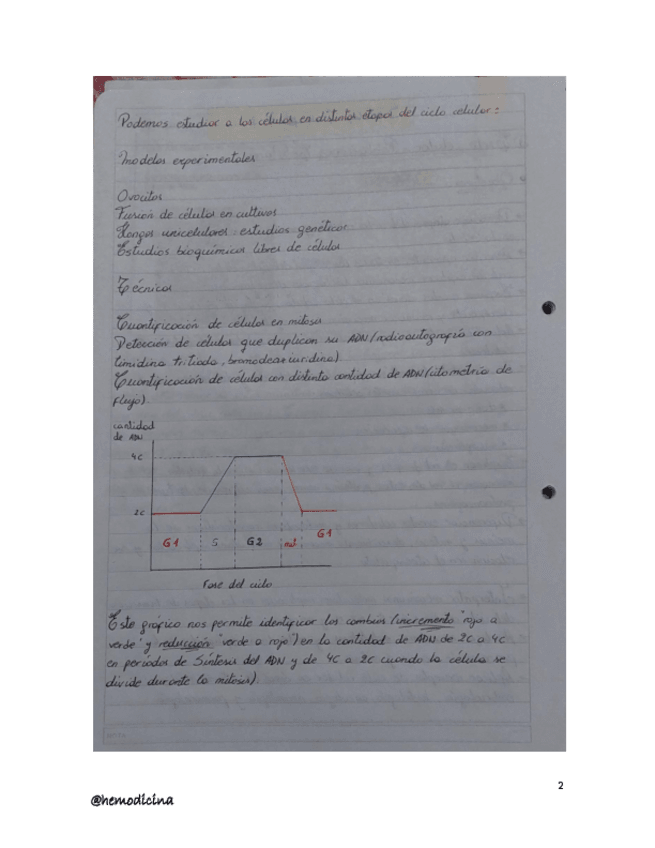 Podemos estudiar a las células en distintas etapas del ciclo celular:
Modelos experimentales
Ovocitos
Fusión de células en cultivos
Hongos unicelulares: estudios genéticos
Estudios bioquímicos libres de células
Técnicas
Cuantificación de células en mitosis
Detección de células que duplican su ADN (radioautografía con
timidina tritiada, bromodeoxiuridina).
Cuantificación de células con distinta cantidad de ADN (citometría de
flujo).
cantidad
de ADN
4c
2c
G1 S G2 mit G1
Fase del ciclo
Este gráfico nos permite identificar los cambios (incremento "rojo a
verde" y reducción "verde a rojo") en la cantidad de ADN de 2C a 4C
en períodos de Síntesis del ADN y de 4C a 2C cuando la célula se
divide durante la mitosis).
2
@hemodicina